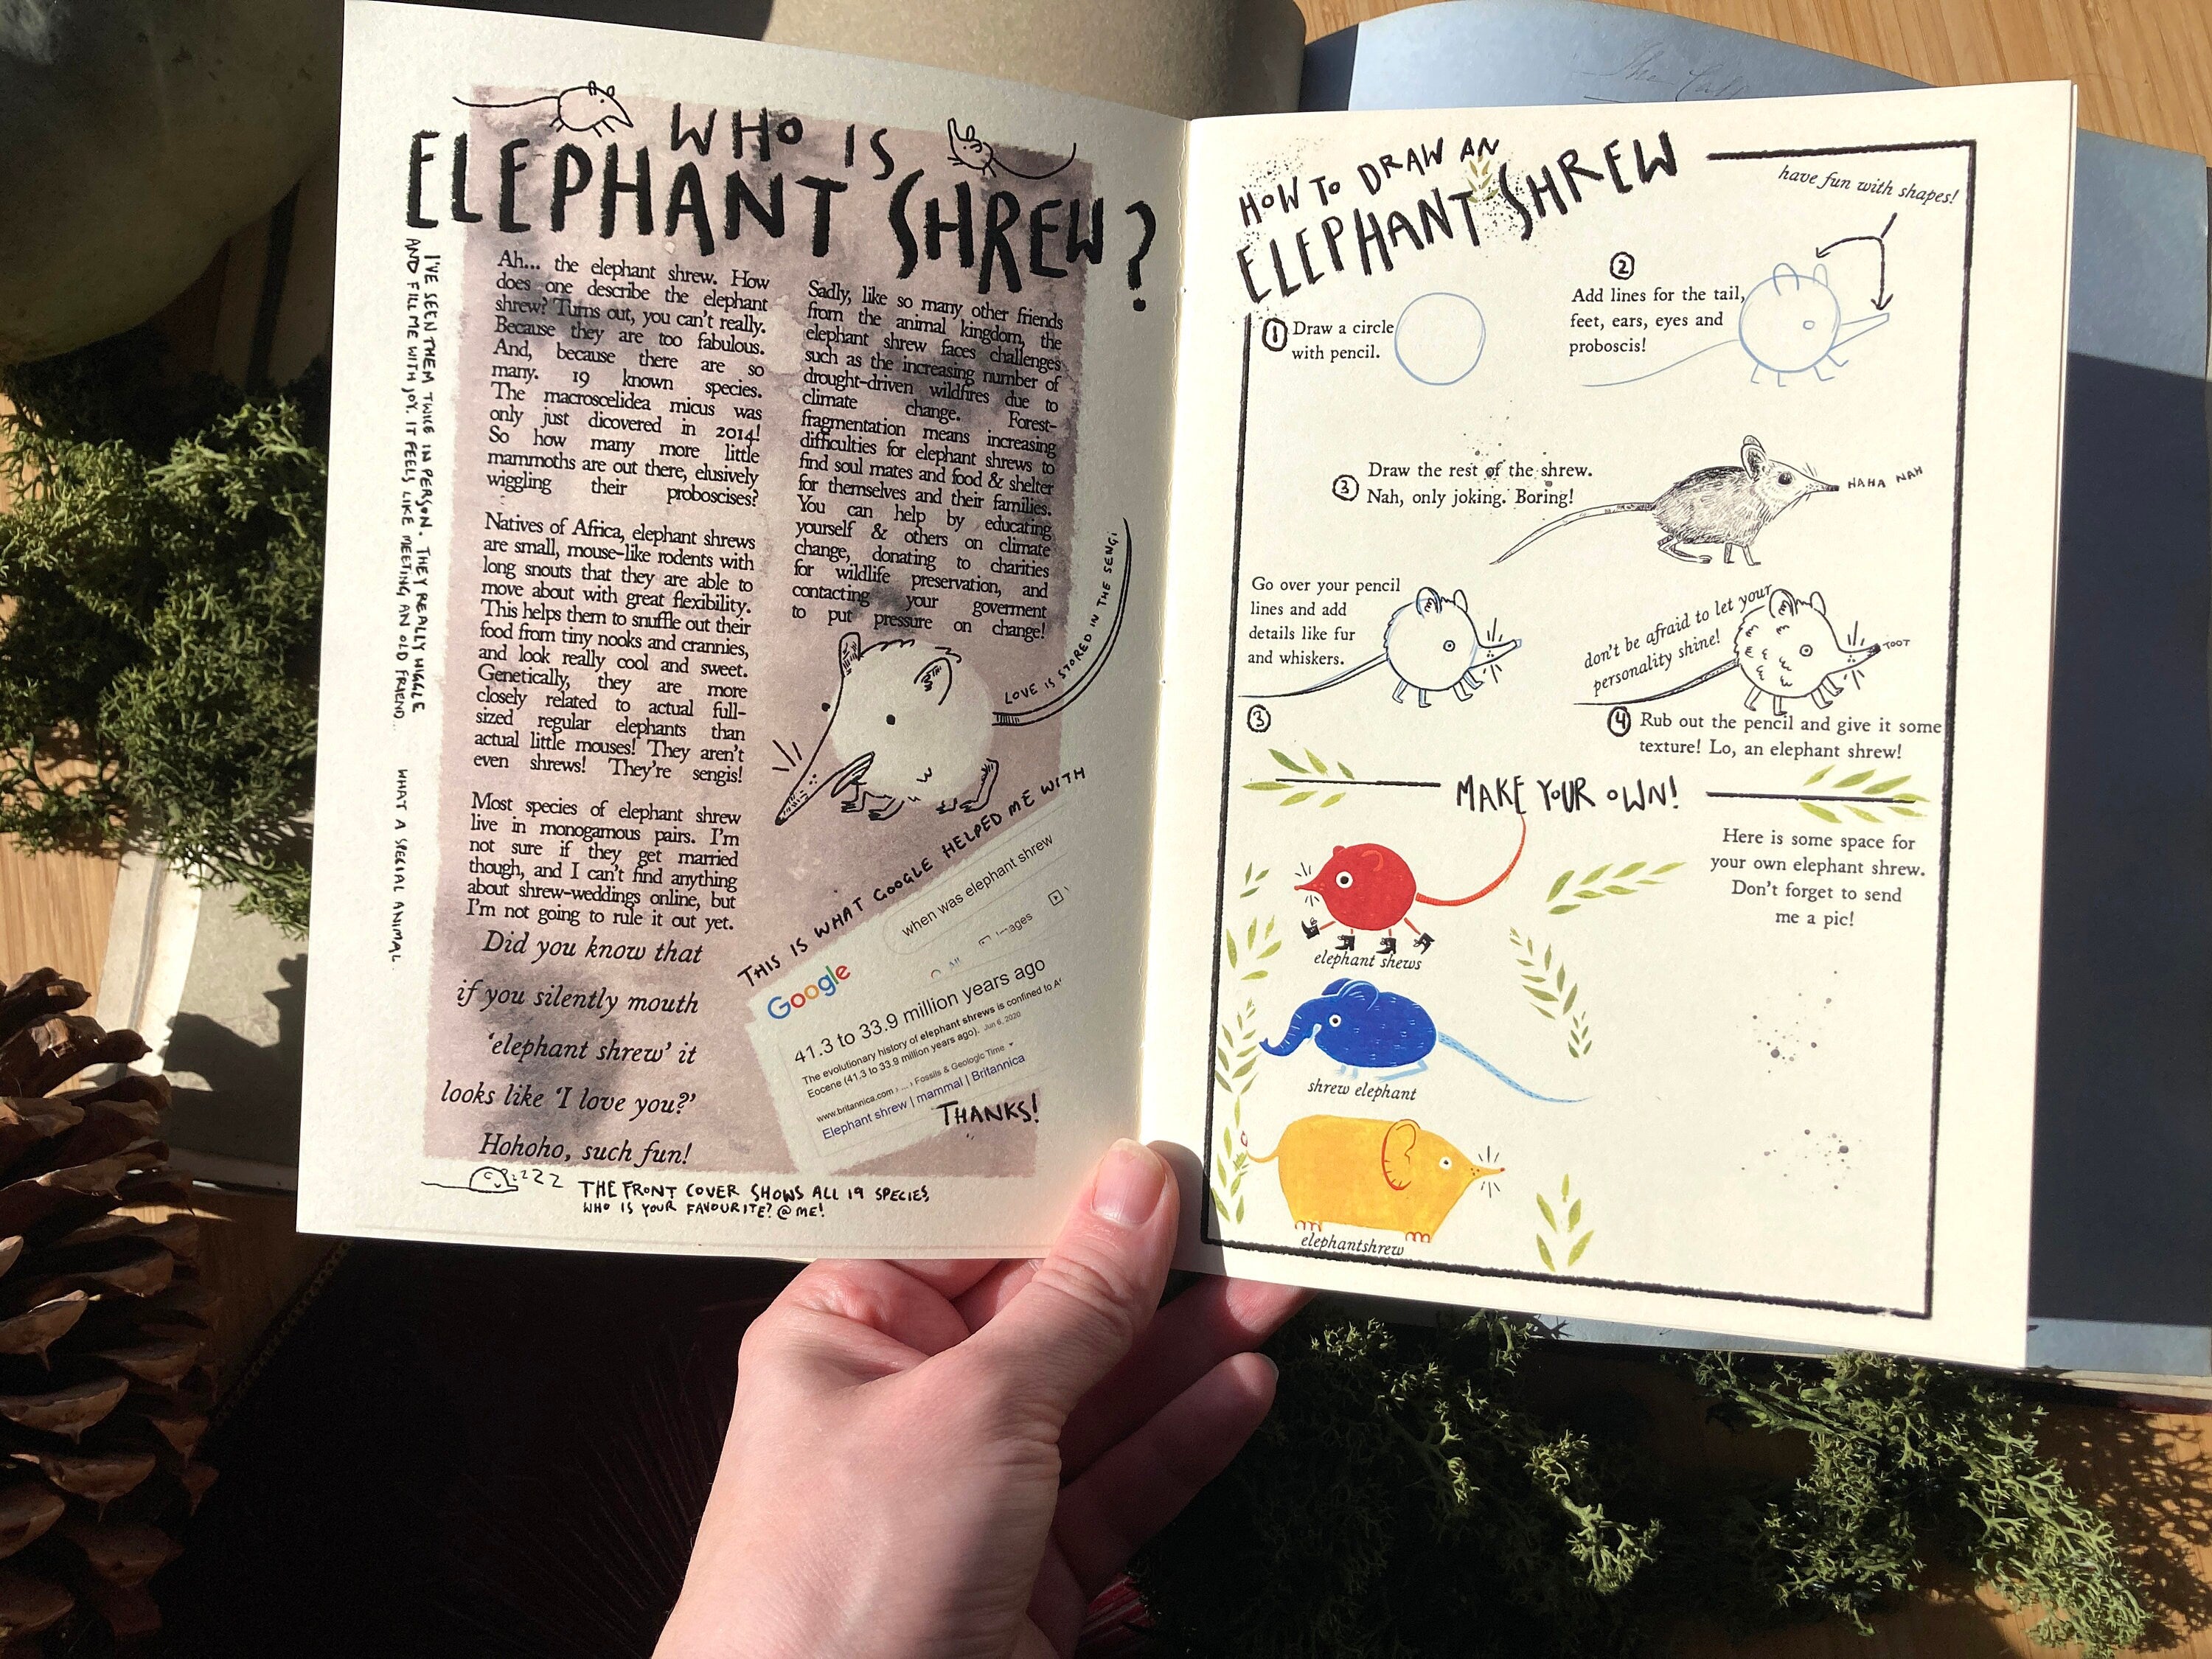 WHO IS
ELEPHANT SHREW?
I'VE SEEN THEM TWICE IN PERSON. THEY REALLY WIGGLE
AND FILL ME WITH JOY. IT FEELS LIKE MEETING AN OLD FRIEND... WHAT A SPECIAL ANIMAL.
Ah... the elephant shrew. How
does one describe the elephant
shrew? Turns out, you can't really.
Because they are too fabulous.
And, because there are so
many. 19 known species.
The macroscelidea micus was
only just dicovered in 2014!
So how many more little
mammoths are out there, elusively
wiggling their proboscises?
Natives of Africa, elephant shrews
are small, mouse-like rodents with
long snouts that they are able to
move about with great flexibility.
This helps them to snuffle out their
food from tiny nooks and crannies,
and look really cool and sweet.
Genetically, they are more
closely related to actual full-
sized regular elephants than
actual little mouses! They aren't
even shrews! They're sengis!
Most species of elephant shrew
live in monogamous pairs. I'm
not sure if they get married
though, and I can't find anything
about shrew-weddings online, but
I'm not going to rule it out yet.
Did you know that
if you silently mouth
'elephant shrew' it
looks like 'I love you?'
Hohoho, such fun!
Sadly, like so many other friends
from the animal kingdom, the
elephant shrew faces challenges
such as the increasing number of
drought-driven wildfires due to
climate change. Forest-
fragmentation means increasing
difficulties for elephant shrews to
find soul mates and food & shelter
for themselves and their families.
You can help by educating
yourself & others on climate
change, donating to charities
for wildlife preservation, and
contacting your goverment
to put pressure on change!
LOVE IS STORED IN THE SENGI
THIS IS WHAT GOOGLE HELPED ME WITH
Google
when was elephant shrew
All
Images
41.3 to 33.9 million years ago
The evolutionary history of elephant shrews is confined to A
Eocene (41.3 to 33.9 million years ago). Jun 6, 2020
www.britannica.com › ... › Fossils & Geologic Time
Elephant shrew | mammal | Britannica
THANKS!
ZZZZ
THE FRONT COVER SHOWS ALL 19 SPECIES,
WHO IS YOUR FAVOURITE? @ ME!
HOW TO DRAW AN
ELEPHANT SHREW
have fun with shapes!
1 Draw a circle
with pencil.
2
Add lines for the tail,
feet, ears, eyes and
proboscis!
3 Draw the rest of the shrew.
Nah, only joking. Boring!
HAHA NAH
Go over your pencil
lines and add
details like fur
and whiskers.
3
don't be afraid to let your
personality shine!
TOOT
4 Rub out the pencil and give it some
texture! Lo, an elephant shrew!
MAKE YOUR OWN!
Here is some space for
your own elephant shrew.
Don't forget to send
me a pic!
elephant shews
shrew elephant
elephantshrew